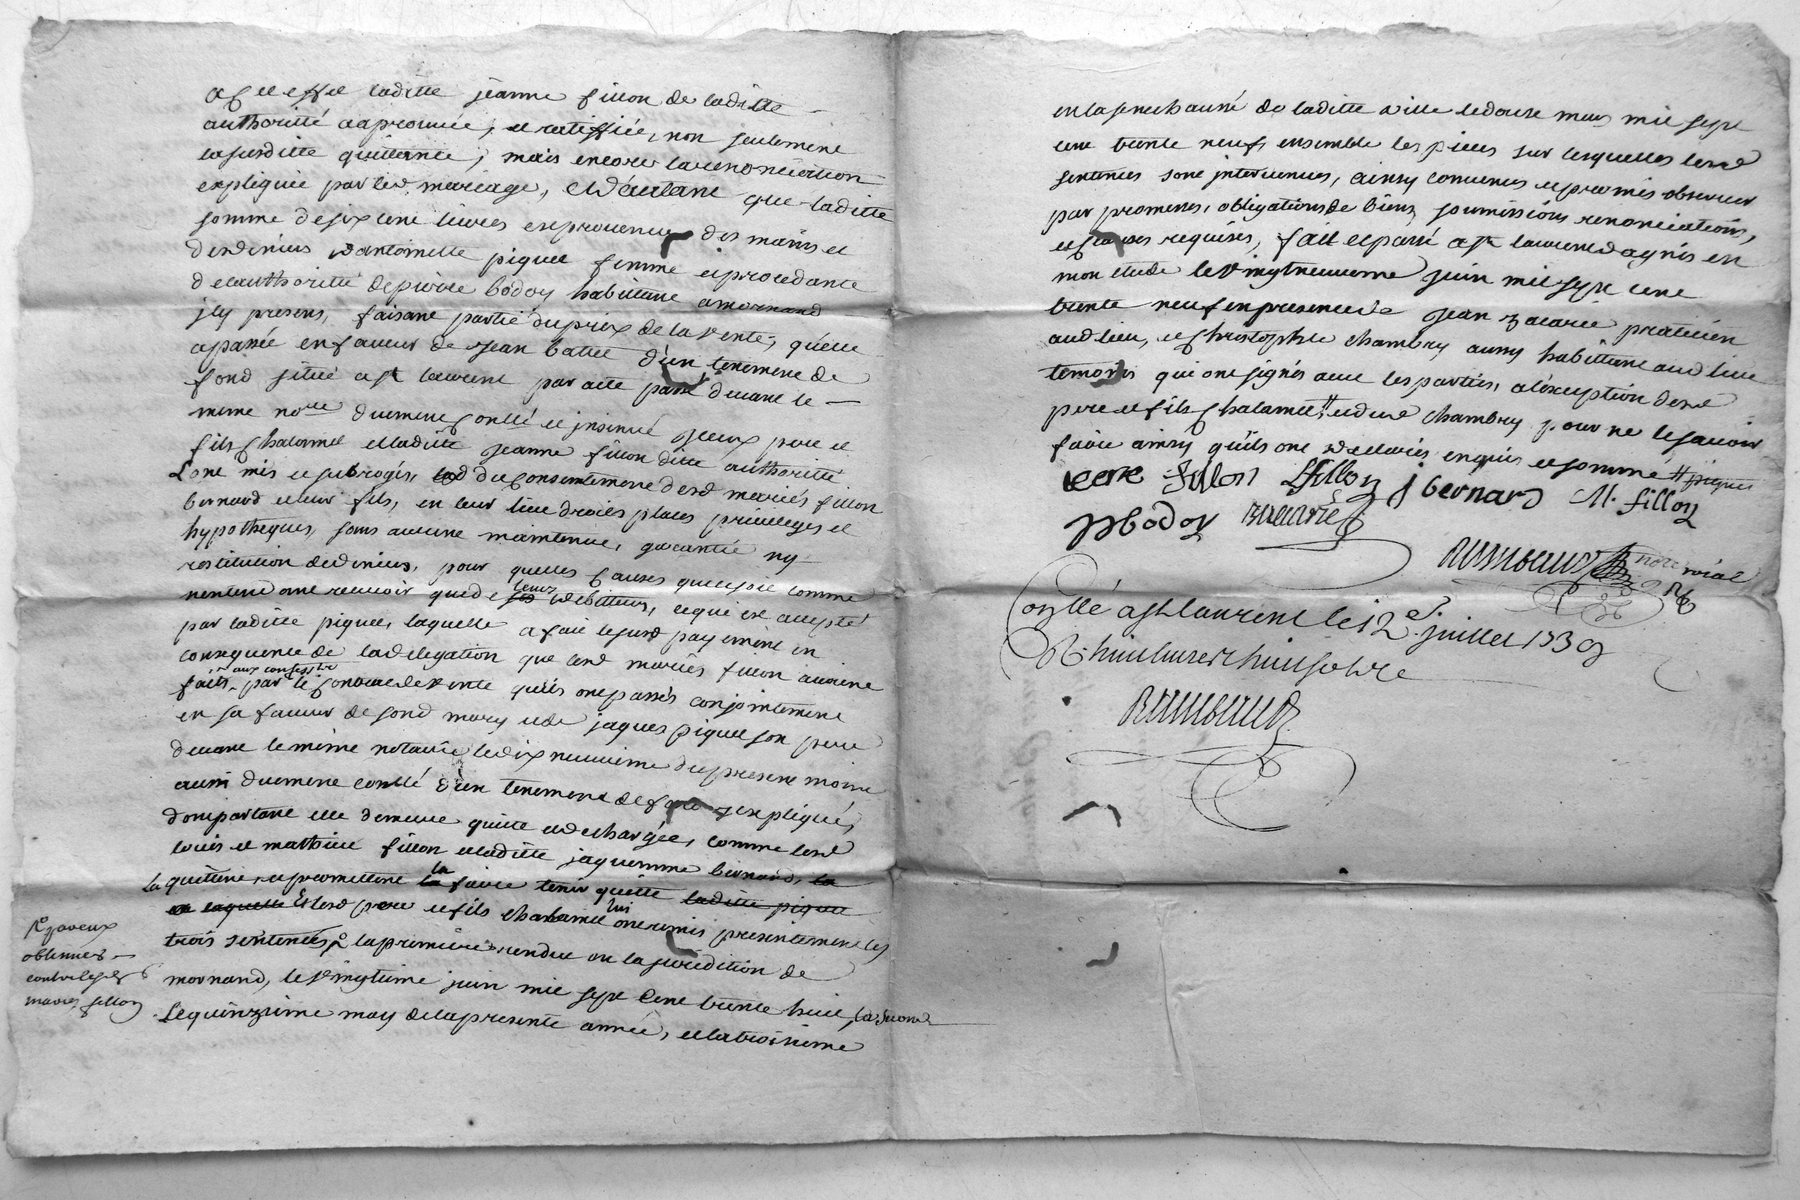 a cet effet laditte jeanne fillon de laditte
authoritté a aprouvée, et ratiffiée, non seulement
la susditte quittance, mais encore la renonciation
expliquée par led mariage, et d'autant que laditte
somme de six cent livres est provenue des mains et
des deniers d'antoinette piquet femme et procedante
de l'authoritté de pierre bodoy habittant a mornand
jcy present, faisant partie du prix de la vente, qu'elle
a passée en faveur de jean battet d'un tenement de
fond situé a st laurent par acte passé devant le
meme no.re duement conllé et insinué jceux pere et
fils chalamel et laditte jeanne fillon ditte authoritté
L'ont mis et subrogés, du consentement desd mariés fillon
bernard et leur fils, en leur lieu droits places privileges et
hypotheques, sans aucune maintenue, garantie ny
restitution de deniers, pour quelles causes que ce soit comme
n'entendant recevoir que de leurs debitteurs, ce qui est accepté
par laditte piquet, laquelle a fait le susd payement en
consequence de la delegation que lesd mariés fillon avoient
faits par le contract de vente qu'ils ont passés conjointement
en sa faveur de sond mary et de jaques piquet son pere
devant le même notaire le dix neuvieme du present mois
aussi duement conllé d'un tenement de fond y expliqué,
dont partant elle demeure quitte et dechargée, comme lesd
louis et mathieu fillon et laditte jaquemme bernard, la
la quittent, et promettent la faire tenir quitte laditte piquet
et laquelle Et lesd pere et fils chalamel lui ont remis presentement les
trois sentences la premiere rendue en la juridition de
mornand, le vingtieme juin mil sept cent trente huit, la second
Le quinzieme may de la presente année, et la troisieme
par eux
obtenues
contre lesds
mariés fillon
en la senechaussé de laditte ville le douze mars mil sept
cent trente neuf ensemble les pieces sur lesquelles lesd
sentences sont intervenues, ainsy convenus et promis observer
par promesses, obligations de biens, soumissions, renonciations,
et clauses requises, fait et passé a st laurent dagnis en
mon etude le vingt neuvieme juin mil sept cent
trente neuf en presence de jean zacarie praticien
aud lieu, et christophle chambry aussy habittant aud lieu
temoins qui ont signés avec les parties, a l'exception desd
pere et fils chalamel et dud chambry pour ne le savoir
faire ainsy qu'ils ont declarés enquis et sommé
fillon Lfillon j bernard M. fillon
pbodoy Zacarie
Raimbaud nore roial
Conllé a st laurent le 12e. juillet 1739
R huit livres huit sols
Raimbaud